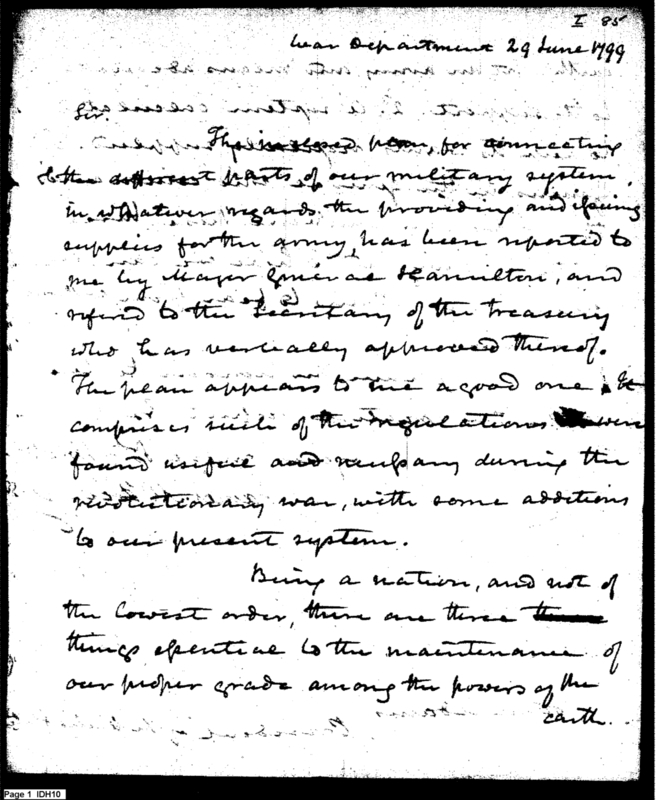 I 85
War Department 29 June 1799
Sir.
The inclosed plan, for connecting
the different parts of our military system,
in whatever regards the providing and issuing
supplies for the army, has been reported to
me by Major General Hamilton, and
referred to the Secretary of the Treasury
who has verbally approved thereof.
The plan appears to me a good one. It
comprises such of the regulations as were
found useful and necessary during the
revolutionary war, with some additions
to our present system.
Being a nation, and not of
the lowest order, there are three
things essential to the maintenance of
our proper grade among the powers of the
earth.
Page 1 IDH10